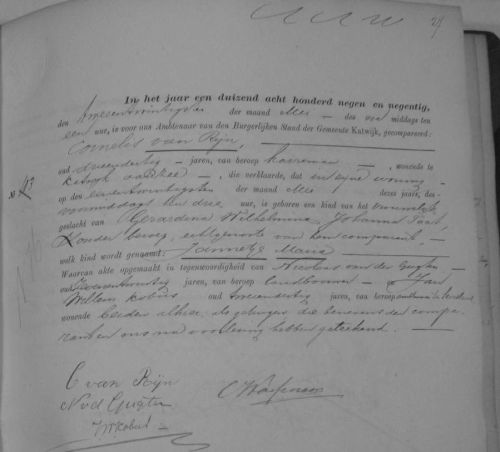 27
In het jaar een duizend acht honderd negen en negentig,
den tweeentwintigsten der maand Mei — des voormiddags ten
een uur, is voor ons Ambtenaar van den Burgerlijken Stand der Gemeente Katwijk, gecompareerd:
Cornelis van Rijn,
oud drieendertig — jaren, van beroep — , wonende te
Katwijk aan Zee — , die verklaarde, dat in zijne woning —
op den eenentwintigsten der maand Mei dezes jaars, des
voormiddags ten drie uur, is geboren een kind van het vrouwelijk
geslacht van Gerardina Wilhelmina Johanna
zonder beroep, echtgenoote van hem comparant, —
welk kind wordt genaamd: Jannetje Maria
Waarvan akte opgemaakt in tegenwoordigheid van Nicolaas van der Gugten —
oud jaren, van beroep — en Jan
Willem Kobus oud tweeendertig jaren, van beroep
wonende beiden alhier, als getuigen, die benevens den compa-
rant en ons na voorlezing hebben geteekend. —
No 93
C van Rijn
N v d Gugten
JW Kobus